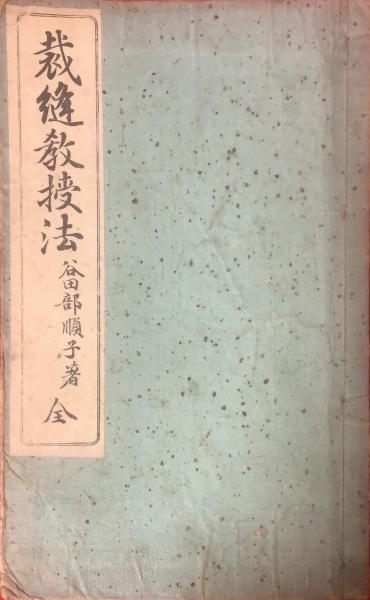 裁縫教授法
谷田部順子著
全